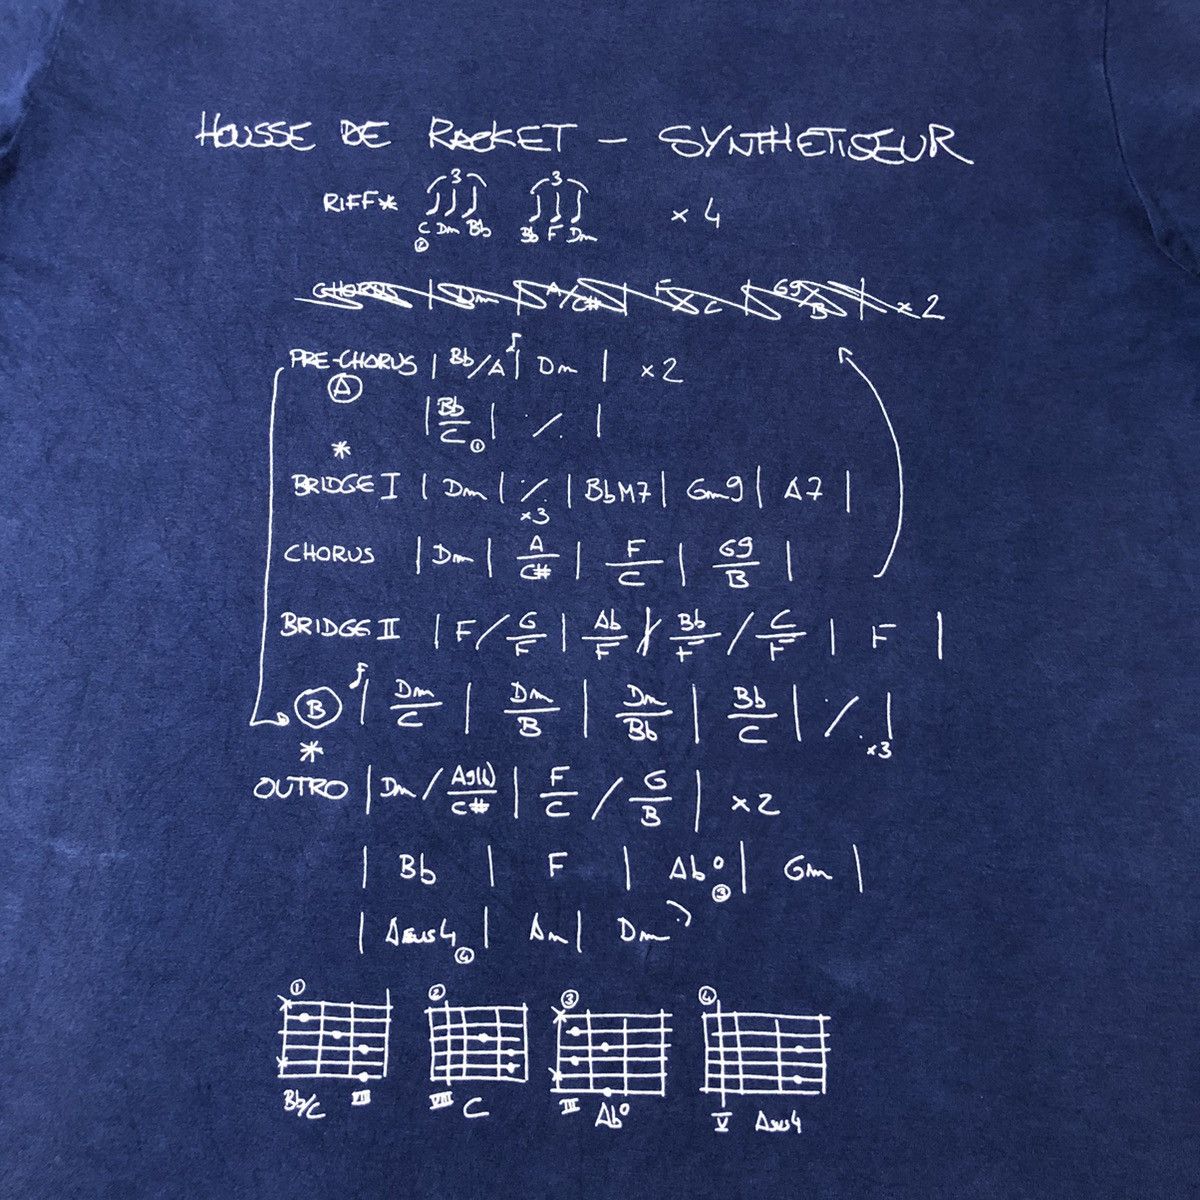 HOUSSE DE RACKET – SYNTHETISEUR
RIFF* 3 3 x 4
C Dm Bb Bb F Dm
②
CHORUS | Dm | A/C# | F/C | G9/B | x 2
PRE-CHORUS | Bb/A | Dm | x2
Ⓐ | Bb/C ① | ٪ |
*
BRIDGE I | Dm | ٪ x3 | BbM7 | Gm9 | A7 |
CHORUS | Dm | A/C# | F/C | G9/B |
BRIDGE II | F / G/F | Ab/F / Bb/F / C/F | F |
Ⓑ | Dm/C | Dm/B | Dm/Bb | Bb/C | ٪ | x3
*
OUTRO | Dm / A9(b)/C# | F/C / G/B | x2
| Bb | F | Ab° ③ | Gm |
| Asus4 ④ | Am | Dm
① ② ③ ④
Bb/C VIII VIII C III Ab° V Asus4